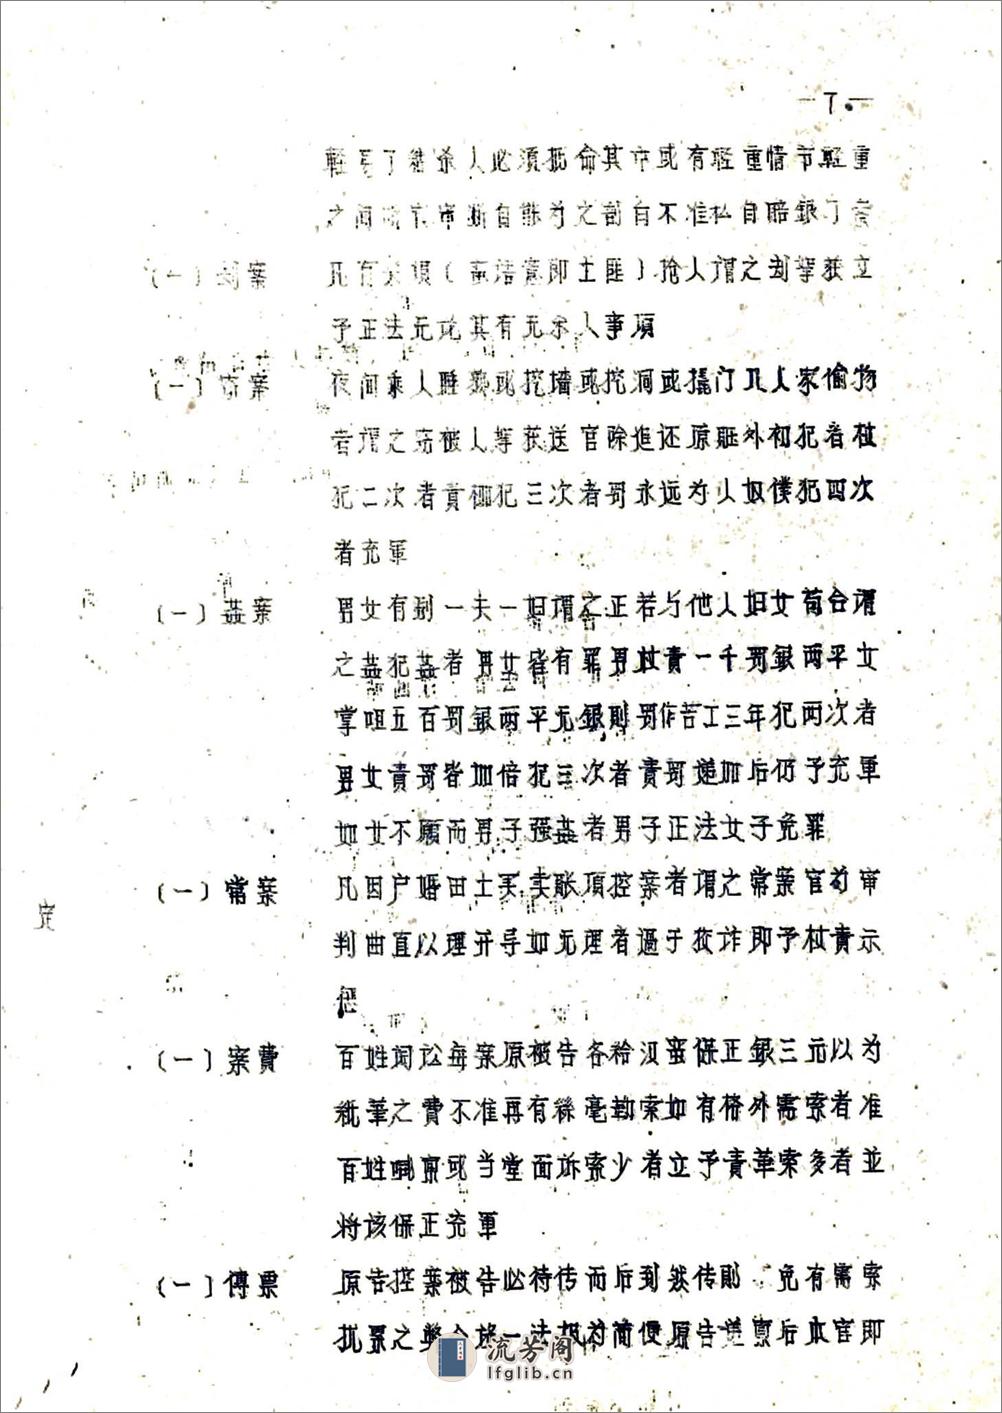 —7·—
轻 了 杀人必须抵命其中或有轻重情节轻重
之间 官审断自能为之剖白不准私自赔银了案
(一)劫案 凡有夹坝(蛮语意即土匪)抢人谓之劫拏获立
予正法无论其有无杀人事項
(一)窃案 夜间乘人睡熟或挖墙或挖洞或撬门入人家偷物
者谓之窃被人拏获送官除追还原赃外初犯者杖
犯二次者責枷犯三次者罚永远为人奴僕犯四次
者充軍
(一)姦案 男女有别一夫一妇谓之正若与他人妇女苟合谓
之姦犯姦者男女皆有罪男杖責一千罚銀两平女
掌咀五百罚銀两平无銀则罚作苦工三年犯两次者
男女責罚皆加倍犯三次者責罚递加后仍予充軍
如女不願而男子强姦者男子正法女子免罪
(一)常案 凡因户婚田土买卖账項控案者谓之常案官为审
判曲直以理开导如无理者過于狡诈即予杖責示
惩
定
(一)案費 百姓词讼每案原被告各给汉蛮保正銀三元以为
紙筆之費不准再有絲毫勒索如有格外需索者准
百姓喊禀或当堂面訴索少者立予責革索多者並
将该保正充軍
(一)傳票 原告控案被告必待传而后到然传则 免有需索
抗累之弊今 一法极为简便原告遞禀后本官即
流芳阁
lfglib.cn